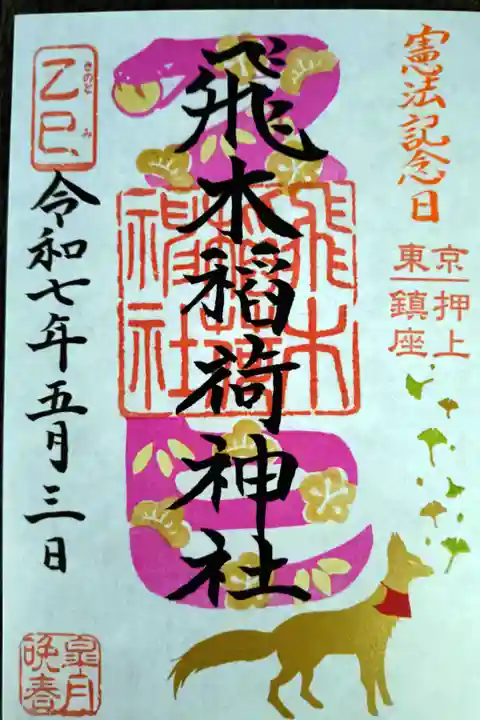 憲法記念日
東京
押上鎮座
飛木稲荷神社
飛木稲荷神社
きのと み
乙巳
令和七年五月三日
皐月
晩春